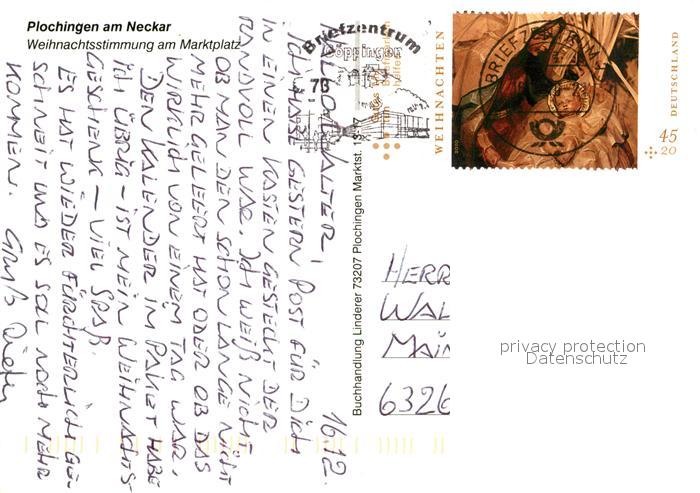 Plochingen am Neckar
Weihnachtsstimmung am Marktplatz
Briefzentrum
Göppingen
73
WEIHNACHTEN
DEUTSCHLAND
45
20
BRIEFZENTRUM
Buchhandlung Linderer 73207 Plochingen Marktst. 13-17
16.12.
HALLO WALTER!
ICH HABE GESTERN POST FÜR DICH
IN EINEN KASTEN GESTECKT DER
RANDVOLL WAR. ICH WEIß NICHT
OB MAN DEN SCHON LANGE NICHT
MEHR GELEERT HAT ODER OB DAS
WIRKLICH VON EINEM TAG WAR.
DEN KALENDER IM PAKET HABE
ICH ÜBRIG – IST MEIN WEIHNACHTS-
GESCHENK – VIEL SPAß.
ES HAT WIEDER FÜRCHTERLICH GE-
SCHNEIT UND ES SOLL NOCH MEHR
KOMMEN. GRUß Dieter
HERR
WAL
MAIN
6326
privacy protection
Datenschutz